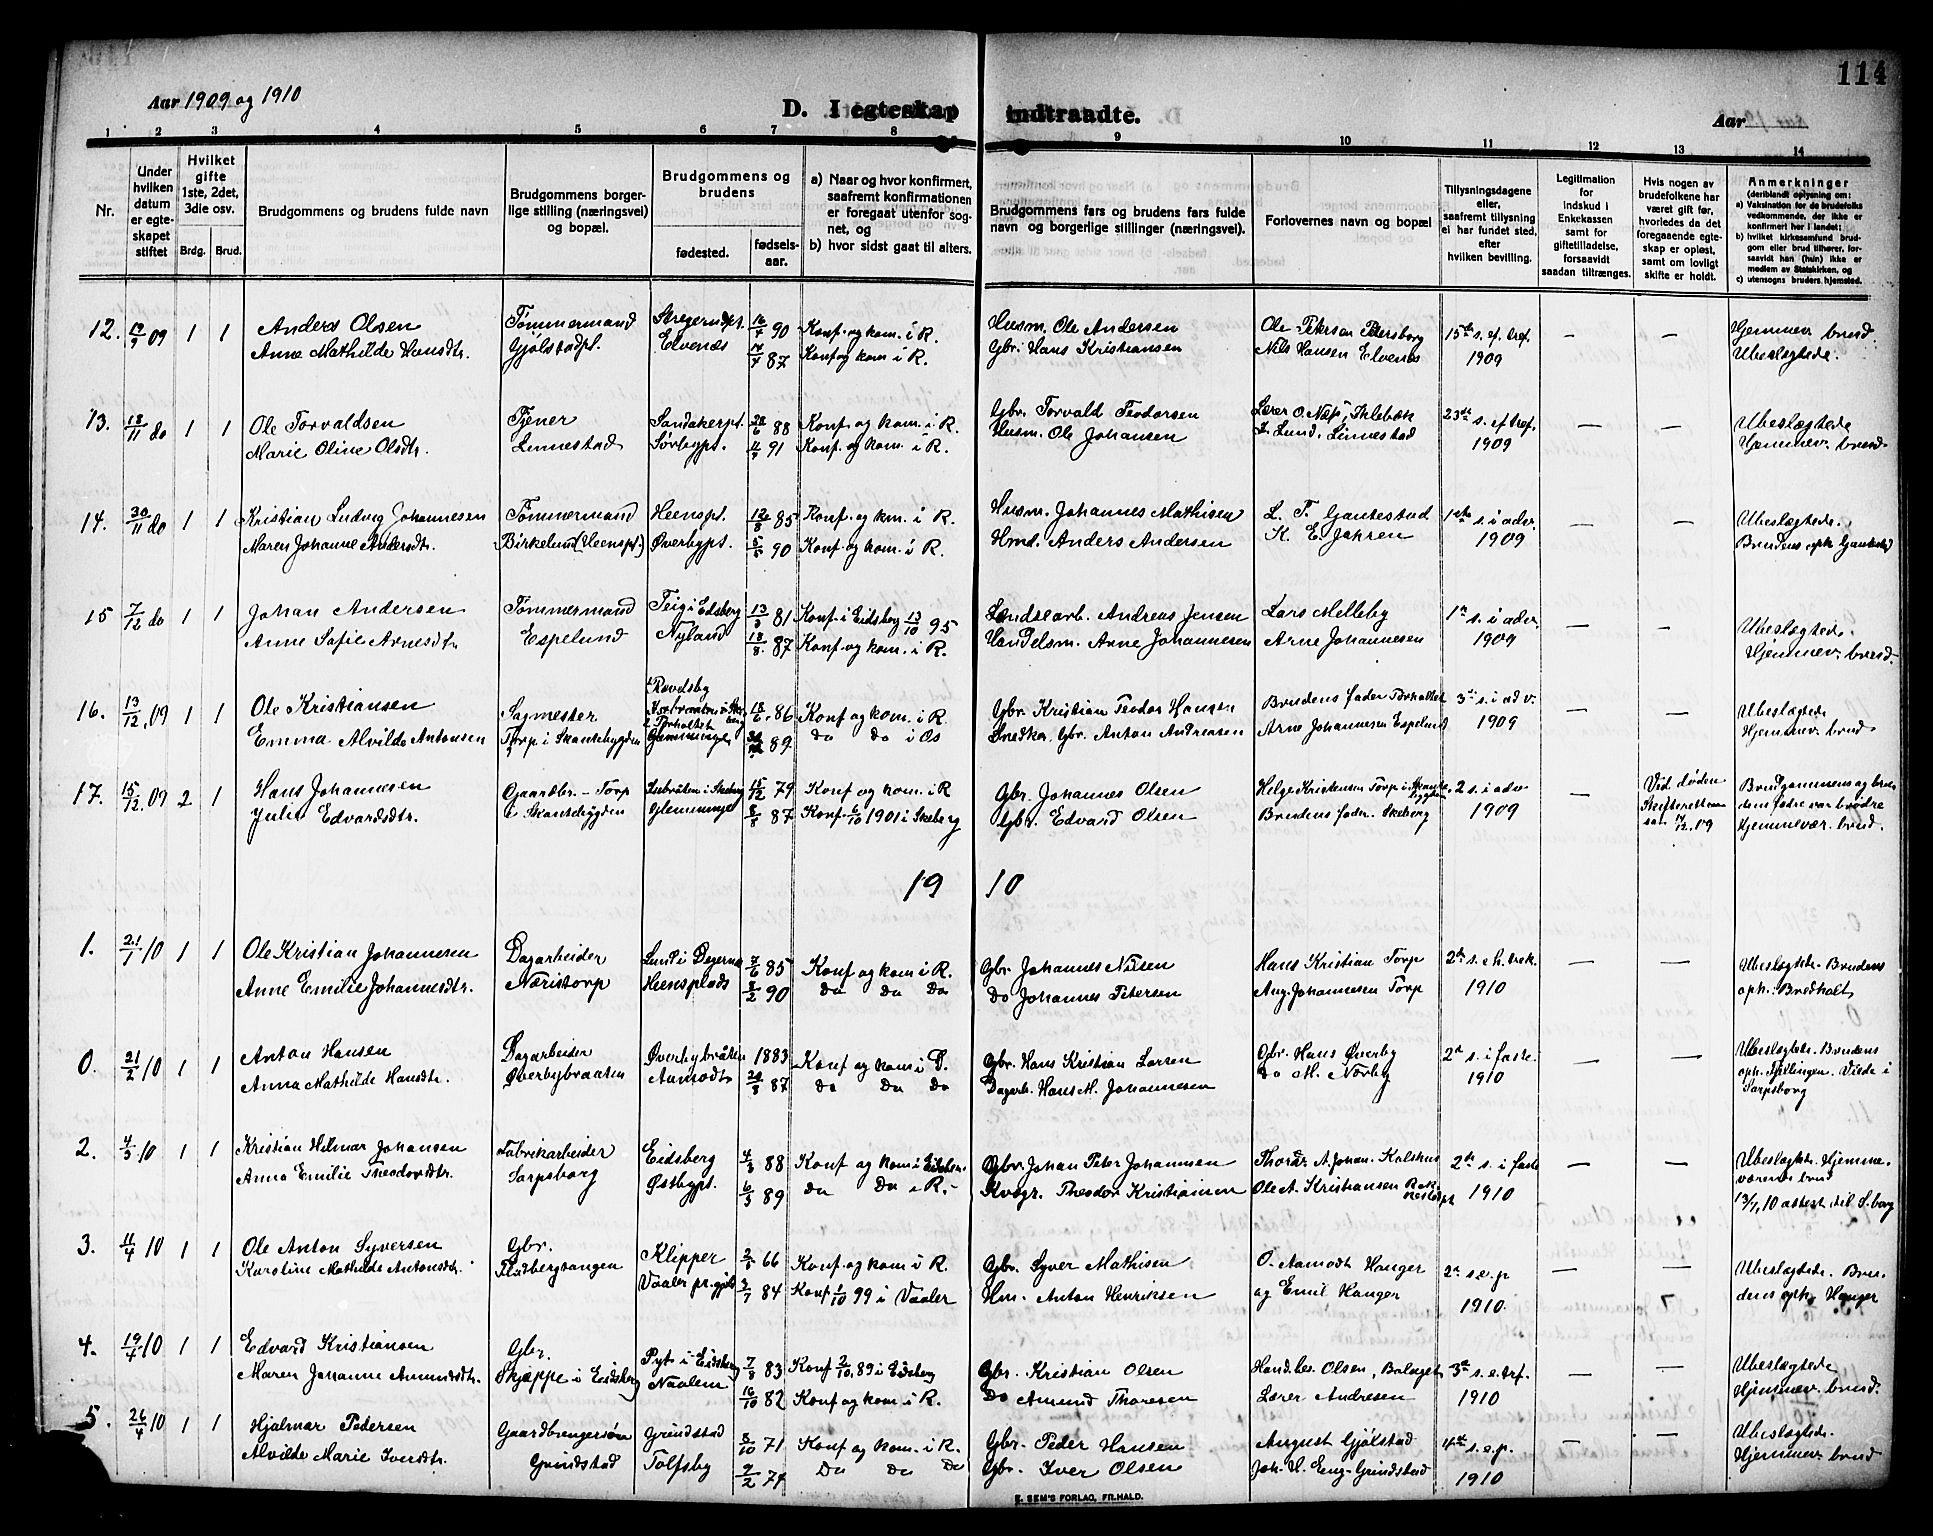 114
Aar 1909 og 1910
D. I egteskap indtraadte.
Aar
1 2 3 4 5 6 7 8 9 10 11 12 13 14
Nr.
Under hvilken datum er egteskapet stiftet
Hvilket gifte 1ste, 2det, 3die osv.
Brdg. Brud.
Brudgommens og brudens fulde navn
Brudgommens borgerlige stilling (næringsvei) og bopæl.
Brudgommens og brudens
fødested. fødselsaar.
a) Naar og hvor konfirmert, saafremt konfirmationen er foregaat utenfor sognet, og
b) hvor sidst gaat til alters.
Brudgommens fars og brudens fars fulde navn og borgerlige stillinger (næringsvei).
Forlovernes navn og bopæl
Tillysningsdagene eller, saafremt tillysning ei har fundet sted, efter hvilken bevilling.
Legitimation for indskud i Enkekassen samt for giftetilladelse, forsaavidt saadan tiltrænges.
Hvis nogen av brudefolkene har været gift før, hvorledes da det foregaaende egteskap er opløst, samt om lovligt skifte er holdt.
Anmerkninger (deriblandt oplysning om:
a) Vaksination for de brudefolks vedkommende, der ikke er konfirmert her i landet;
b) hvilket kirkesamfund brudgom eller brud tilhører, forsaavidt han (hun) ikke er medlem av Statskirken, og
c) utensogns bruders hjemsted.
12. 19/9 09 1 1 Anders Olsen Tømmermand 16/4 90 Konf. og kom. i R. Husm. Ole Andersen Ole Petersen 15de s. ef. tref. — — Hjemmev. brud
Anne Mathilde Hansdtr. Gjølstadpl. Elvenæs 14/4 87 Konf og kom i R. Gbr. Hans Kristiansen Nils Hansen Elvenes 1909 Ubeslægtede.
13. 18/11 do 1 1 Ole Torvaldsen Tjener Sandakerpl. 28/6 88 Konf og kom. i R. Gbr. Torvald Teodorsen Lærer O. Næs, 23de s. ef. tref. — — Ubeslægtede
Marie Oline Olsdtr. Linnestad Sørbypl. 91 Konf. og kom. i R. Husm. Ole Johansen Lund, Linnestad 1909 Hjemmev. brud.
14. 30/11 do 1 1 Kristian Ludvig Johannesen Tømmermand Heenspl. 12/8 85 Konf. og kom. i R. Husm. Johannes Mathisen L. T. Gautestad 1ste s. i adv. — — Ubeslægtede.
Maren Johanne Andersdtr. Birkelund (Heenspl.) Øverbypl. 90 Konf. og kom. i R. Hmd. Anders Andersen K. E. Jahren 1909 Brudens oph. Gautestad
15 7/12 do 1 1 Johan Andersen Tømmermand Teig i Edsberg 81 Konf. i Eidsberg 13/10 95 Andreas Jensen Lars Melleby 1ste s. i adv. — — Ubeslægtede.
Anne Sofie Arnesdtr. Espelund Nyland 18/8. 87 Konf. og kom. i R. Handelsm. Arne Johannesen Arne Johannesen 1909 Hjemmev. brud.
16. 13/12. 09 1 1 Ole Kristiansen Sagmester 18/6. 86 Konf og kom. i R. Gbr Kristian Teodor Hansen Brudens fader 3de s. i adv. — — Ubeslægtede
Emma Alvilde Antonsen Torp i Skantebygden 89 do do i Os Snedker, Gbr. Anton Andreasen Arne Johannesen Espelund 1909 Hjemmev. brud.
17. 15/12. 09 2 1 Hans Johannesen Gaardbr. – Torp 15/12 79 Konf og kom. i R Gbr. Johannes Olsen Helge Kristensen Torp i 2 s. i adv. — Ved døden Brudgommens og brudens fædre var brødre
Julie Edvardsdtr. i Skantebygden Glemminge 8/8 87 Konf. 6/10 1901 i Skeberg Gbr. Edvard Olsen Brudens fader. Skeberg 1909 12. 09 Hjemmevær. brud.
19 10
1. 21/1 10 1 1 Ole Kristian Johannesen Dagarbeider Lund i Degernes 7/6 85 Konf og kom i R. Gbr Johannes Nilsen Hans Kristian Torp 2den s. e. h. trek. — — Ubeslægtede. Brudens
Anne Emilie Johannesdtr. Næristorp Heensplads 8/2 90 Do Do Do Do Johannes Petersen Aug. Johannesen Torp 1910 oph.: Bredholt
0. 21/2 10 1 1 Anton Hansen Dagarbeider Øverbybråten 1883 Konf og kom i D. Gbr. Hans Kristian Larsen Gbr. Hans Øverby 2den s. i faste. — — Ubeslægtede. Brudens
Anna Mathilde Hansdtr. Øverbybraaten Aamodt 20/8 87 Do Do Do Dagarb. Hans M. Johannesen Do M. Nørby 1910 oph. Viede i Sarpsborg
2. 4/3 10 1 1 Kristian Hilmar Johansen Fabrikarbeider Eidsberg 4/3 88 Konf og kom i Eidsber. Gbr. Johan Peter Johannsen A. Johan. Kalshus 2den s. i faste — — Ubeslægtede. Hjemme-
Anna Emilie Theodorsdtr. Sarpsborg Østbypl. 6/3 89 Do Do i R. Theodor Kristiansen Ole A. Kristiansen 1910 værende brud
13/7, 10 attest til S.borg
3. 11/4 10 1 1 Ole Anton Syversen Gbr. Klipper 66 Konf. og kom i R. Gbr. Syver Mathisen O. Aamodt Hanger 2den s. e. p — — Ubeslægtede. Bru-
Karoline Mathilde Antonsdtr. Vaaler pr.gjeld 3/7 84 Konf 1/10 99 i Vaaler Hm. Anton Henriksen og Emil Hanger 1910. dens oph. Hanger
4. 19/4 10 1 1 Edvard Kristiansen Gbr. i Eidsberg 7/8 83 Konf 2/10. 89 i Eidsberg Gbr. Kristian Olsen Olsen, 3de s. e. trf. — — Ubeslægtede
Maren Johanne Amundsdtr. Skjæppe i Eidsberg Naalem 16/10 82 Konf og kom. i R. Do Amund Thoresen Lærer Andresen 1910 Hjemmev. brud.
5. 26/4 10 1 1 Hjalmar Pedersen Gaardbrugersøn Grindstad 8/10 71 Konf og kom. i R. Gbr. Peder Hansen August Gjølstad 4de s. e. p. — — Ubeslægtede.
Alvilde Marie Iversdtr. Grindstad Tolfsby 9/2 74 Do Do Do Gbr. Iver Olsen Joh. H. Eng-Grindstad 1910 Hjemmev. brud
E. SEM'S FORLAG, FR.HALD.